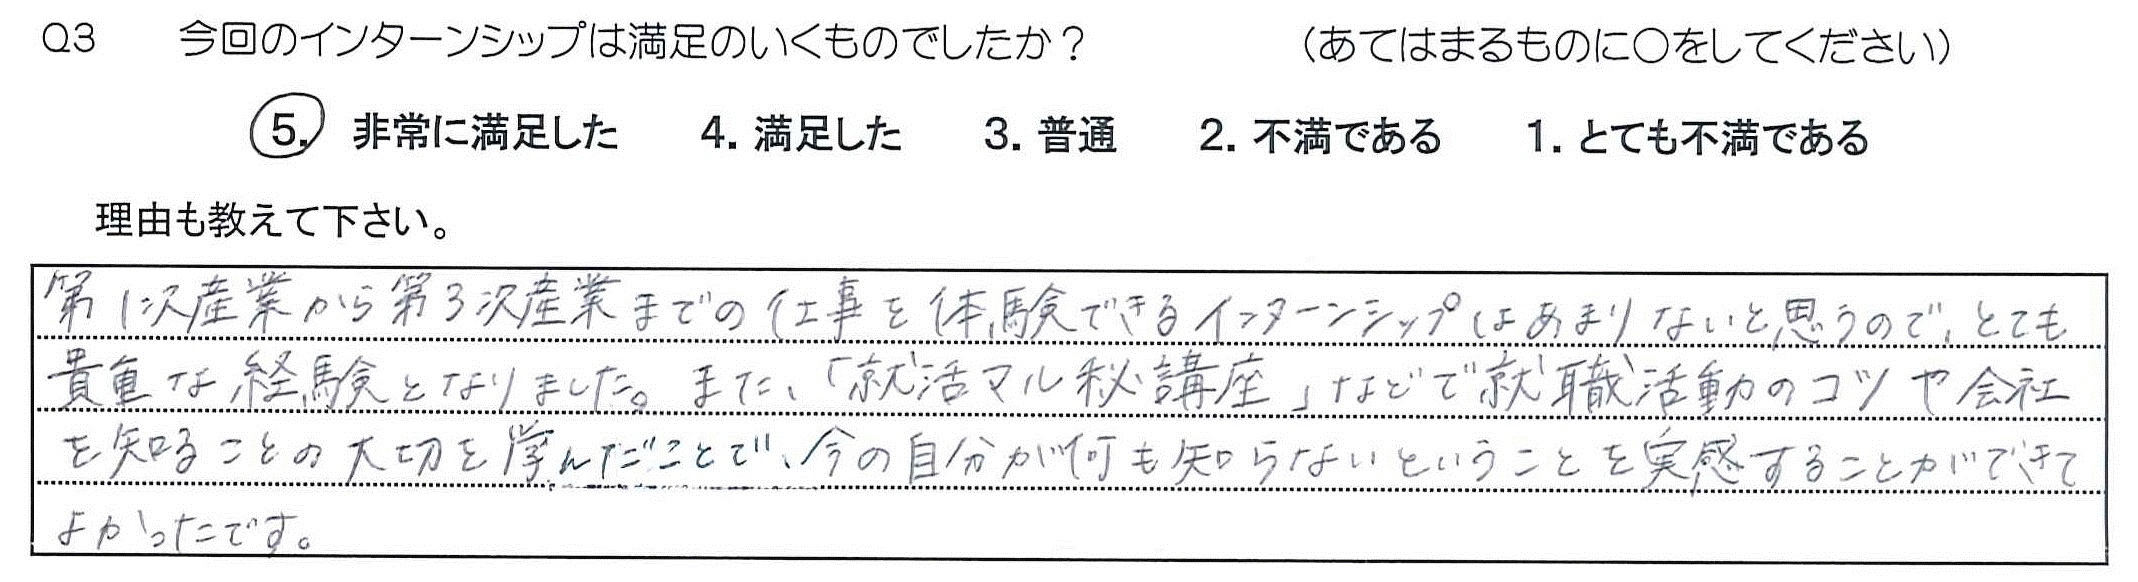 Q3 今回のインターンシップは満足のいくものでしたか？ （あてはまるものに〇をしてください）
5. 非常に満足した 4. 満足した 3. 普通 2. 不満である 1. とても不満である
理由も教えて下さい。
第1次産業から第3次産業までの仕事を体験できるインターンシップはあまりないと思うので、とても
貴重な経験となりました。また、「就活マル秘講座」などで就職活動のコツや会社
を知ることの大切を学んだことで、今の自分が何も知らないということを実感することができて
よかったです。